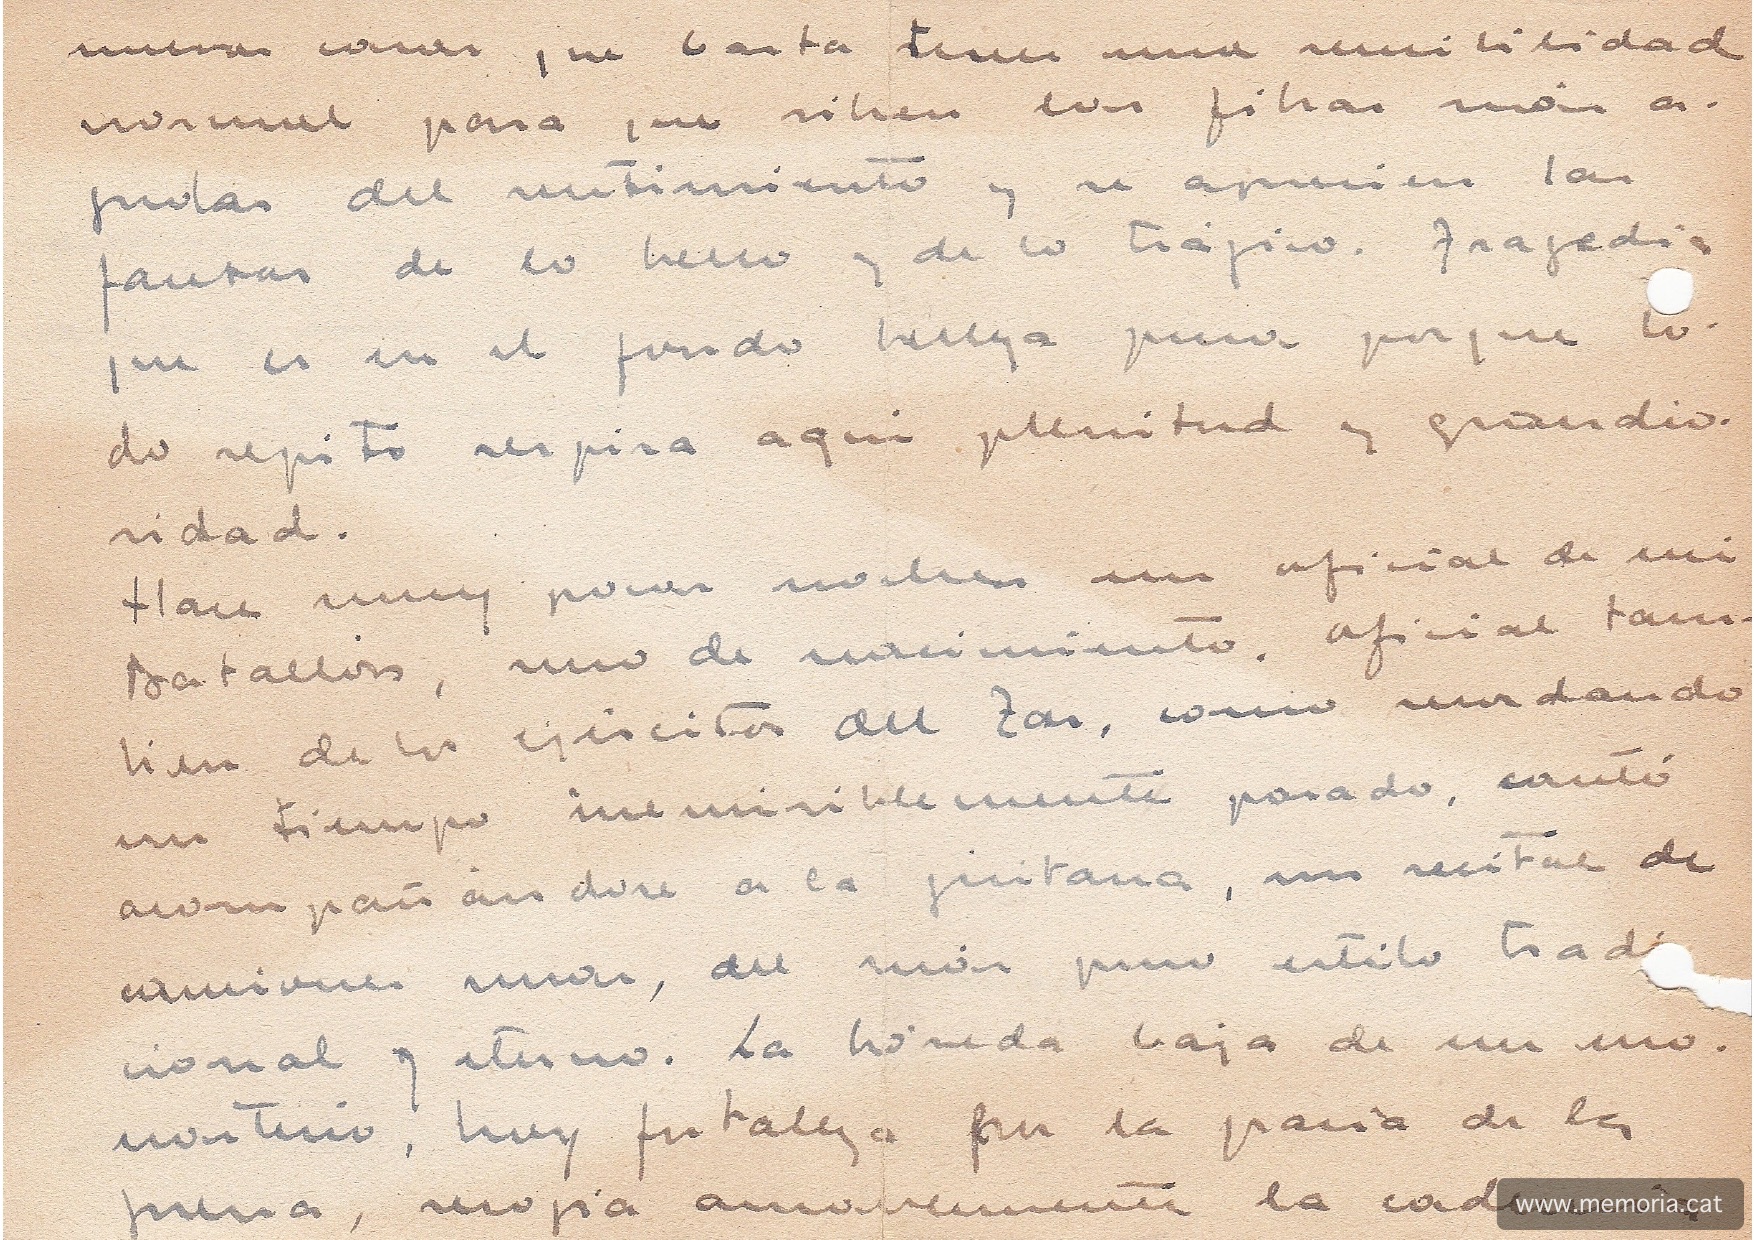 nuevas cosas que basta tener una sensibilidad
normal para que vibren las fibras más a-
gudas del sentimiento y se aprecien las
facetas de lo bello y de lo trágico. Tragedia
que es en el fondo belleza pura porque to-
do repito respira aqui plenitud y grandio-
sidad.
Hace muy pocas noches un oficial de mi
Batallón, ruso de nacimiento, oficial tam-
bien de los ejércitos del Zar, como recordando
un tiempo inemisiblemente pasado, cantó
acompañandose a la guitarra, un recital de
canciones rusas, del más puro estilo tradi
cional y eterno. La bóveda baja de un mo-
nasterio, hoy fortaleza por la gracia de la
guerra, recogía amorosamente la cadencia
www.memoria.cat